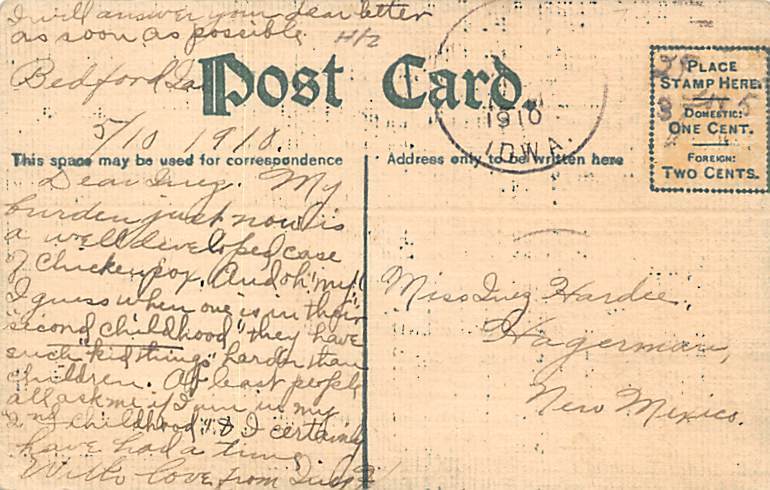 I will answer your dear letter
as soon as possible
Bedford Ia
Post Card.
5/10 1910.
This space may be used for correspondence
Address only to be written here
PLACE
STAMP HERE
DOMESTIC:
ONE CENT.
FOREIGN:
TWO CENTS.
1910
IOWA
Dear Inez. My
burden just now is
a well developed case
of Chicken pox. And oh "my"
I guess when one is in their
"second childhood" they have
such "kid things" harder than
children. At least people
all ask me if I am in my
2nd childhood & I certainly
have had a time
With love from
Miss Inez Hardie,
Hagerman,
New Mexico.